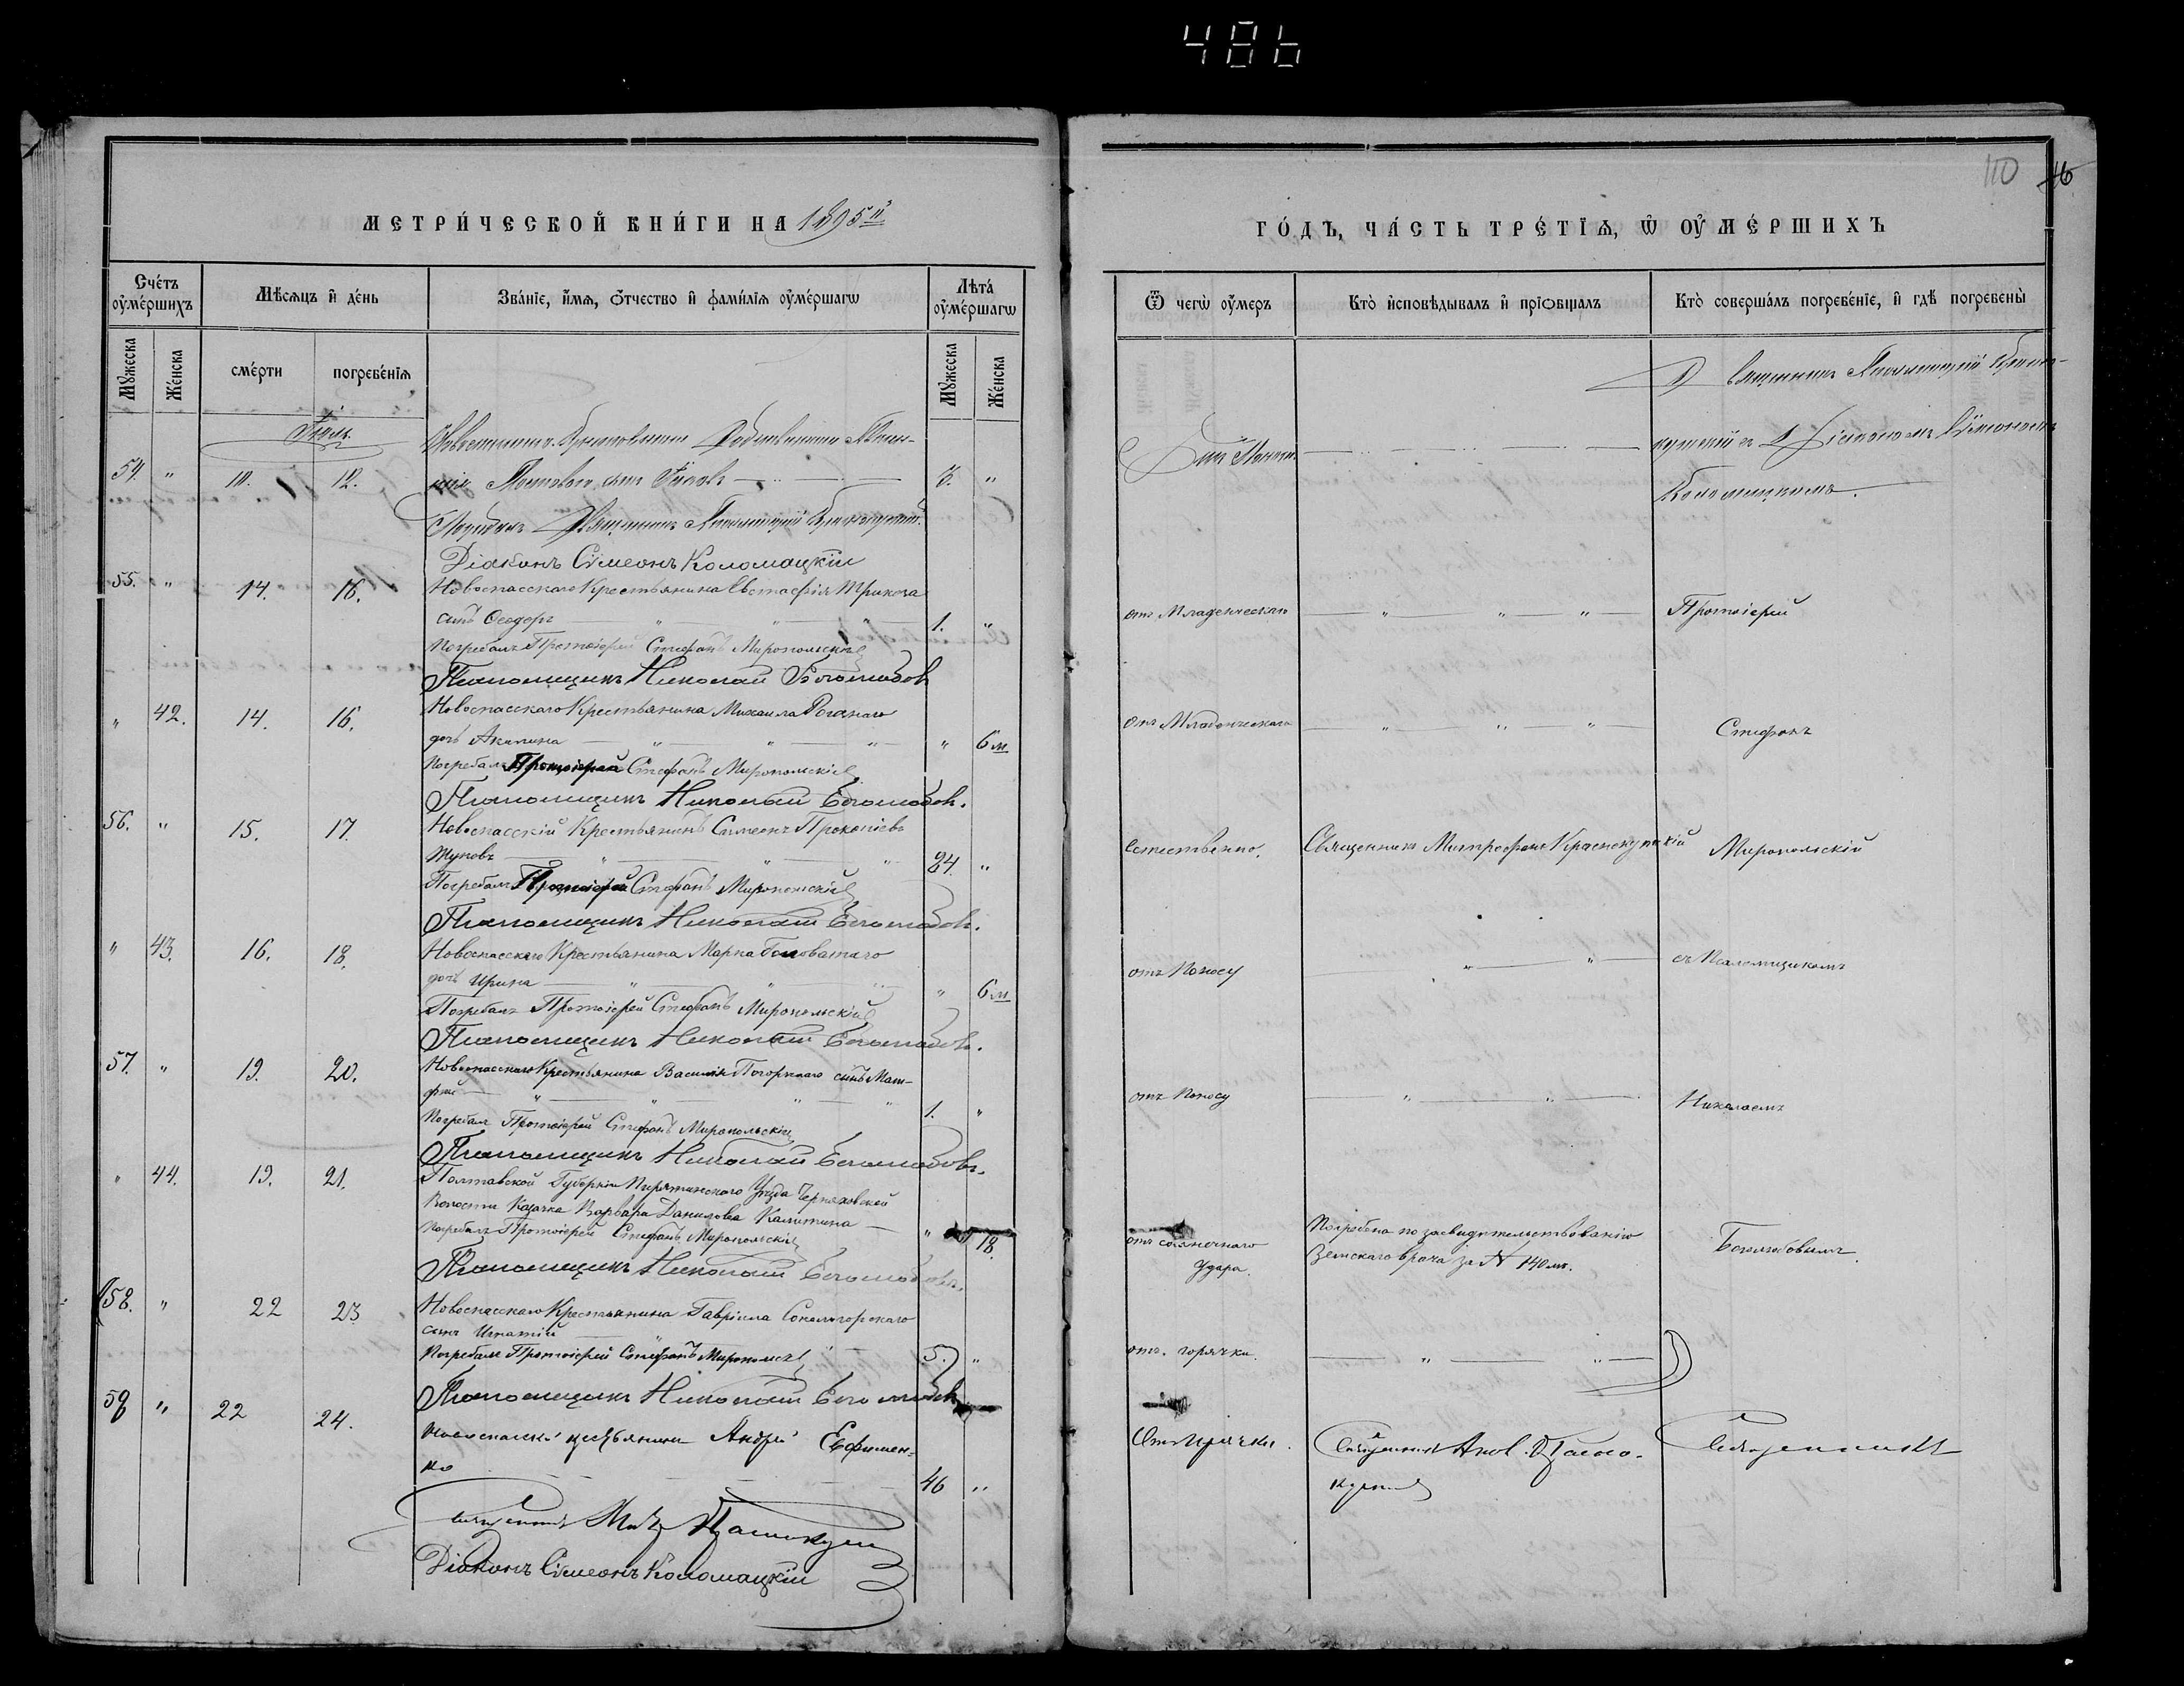 486
110
МЕТРИ́ЧЕСКОЙ КНИ́ГИ НА 1895й
ГО́ДЪ, ЧА́СТЬ ТРЕ́ТІѦ, Ѡ҆ ОУ҆МЕ́РШИХЪ
Сче́тъ оу҆ме́ршихъ
Мѣ́сѧцъ и҆ де́нь
Зва́нїе, и҆́мѧ, ѻ҆́тчество и҆ фами́лїѧ оу҆ме́ршагѡ
Лѣта̀ оу҆ме́ршагѡ
Ѿ чегѡ̀ оу҆́меръ
Кто̀ и҆сповѣ́дывалъ и҆ прїѻбща́лъ
Кто̀ соверша́лъ погребе́нїе, и҆ гдѣ̀ погребены̀
Мꙋ́жеска
Же́нска
сме́рти
погребе́нїѧ
Мꙋ́жеска
Же́нска
Іюль.
54. " 10. 12.
сынъ Іаковъ
Діаконъ Сѵмеонъ Коломацкій
55. " 14. 16. Новоспасскаго Крестьянина Евстафія Трикоза
сынъ Ѳеодоръ 1. "
отъ Младенческаго
Протоіерей
Погребалъ Протоіерей Стефанъ Миропольскій
Псаломщикъ Николай Боголюбовъ
" 42. 14. 16. Новоспасскаго Крестьянина Михаила Роганаго
дочь Акилина " 6 м.
отъ Младенческаго
Стефанъ
Погребалъ Протоіерей Стефанъ Миропольскій
Псаломщикъ Николай Боголюбовъ.
56. " 15. 17. Новоспасскій Крестьянинъ Симеонъ Прокопіевъ
Жуковъ 84. "
Естественно.
Священникъ Митрофанъ Краснокутскій
Миропольскій
Погребалъ Протоіерей Стефанъ Миропольскій
Псаломщикъ Николай Боголюбовъ.
" 43. 16. 18. Новоспасскаго Крестьянина Марка
дочь Ирина " 6 м
отъ Поносу
съ Псаломщикомъ
Погребалъ Протоіерей Стефанъ Миропольскій
Псаломщикъ Николай Боголюбовъ.
57. " 19. 20. Новоспасскаго Крестьянина Василія Погорѣлаго сынъ Мат-
фей 1. "
отъ Поносу
Николаемъ
Погребалъ Протоіерей Стефанъ Миропольскій
Псаломщикъ Николай Боголюбовъ.
" 44. 19. 21. Полтавской Губерніи Пирятинского Уѣзда Черняховской
Волости Козачка Варвара Данилова Калитина " 18.
отъ солнечнаго
Удара.
Погребена по засвидѣтельствованію
Земскаго врача за № 140мъ.
Боголюбовымъ
Погребалъ Протоіерей Стефанъ Миропольскій
Псаломщикъ Николай Боголюбовъ.
58. " 22 23 Новоспасскаго Крестьянина Гавріила Сокологорскаго
сынъ Игнатій 5. "
отъ горячки.
Погребалъ Протоіерей Стефанъ Миропольскій
Псаломщикъ Николай Боголюбовъ
59 " 22 24. Новоспасскій крестьянинъ Андрей Евфимен-
ко 46 "
Отъ горячки.
Священникъ
Священникъ
Діаконъ Сѵмеонъ Коломацкій